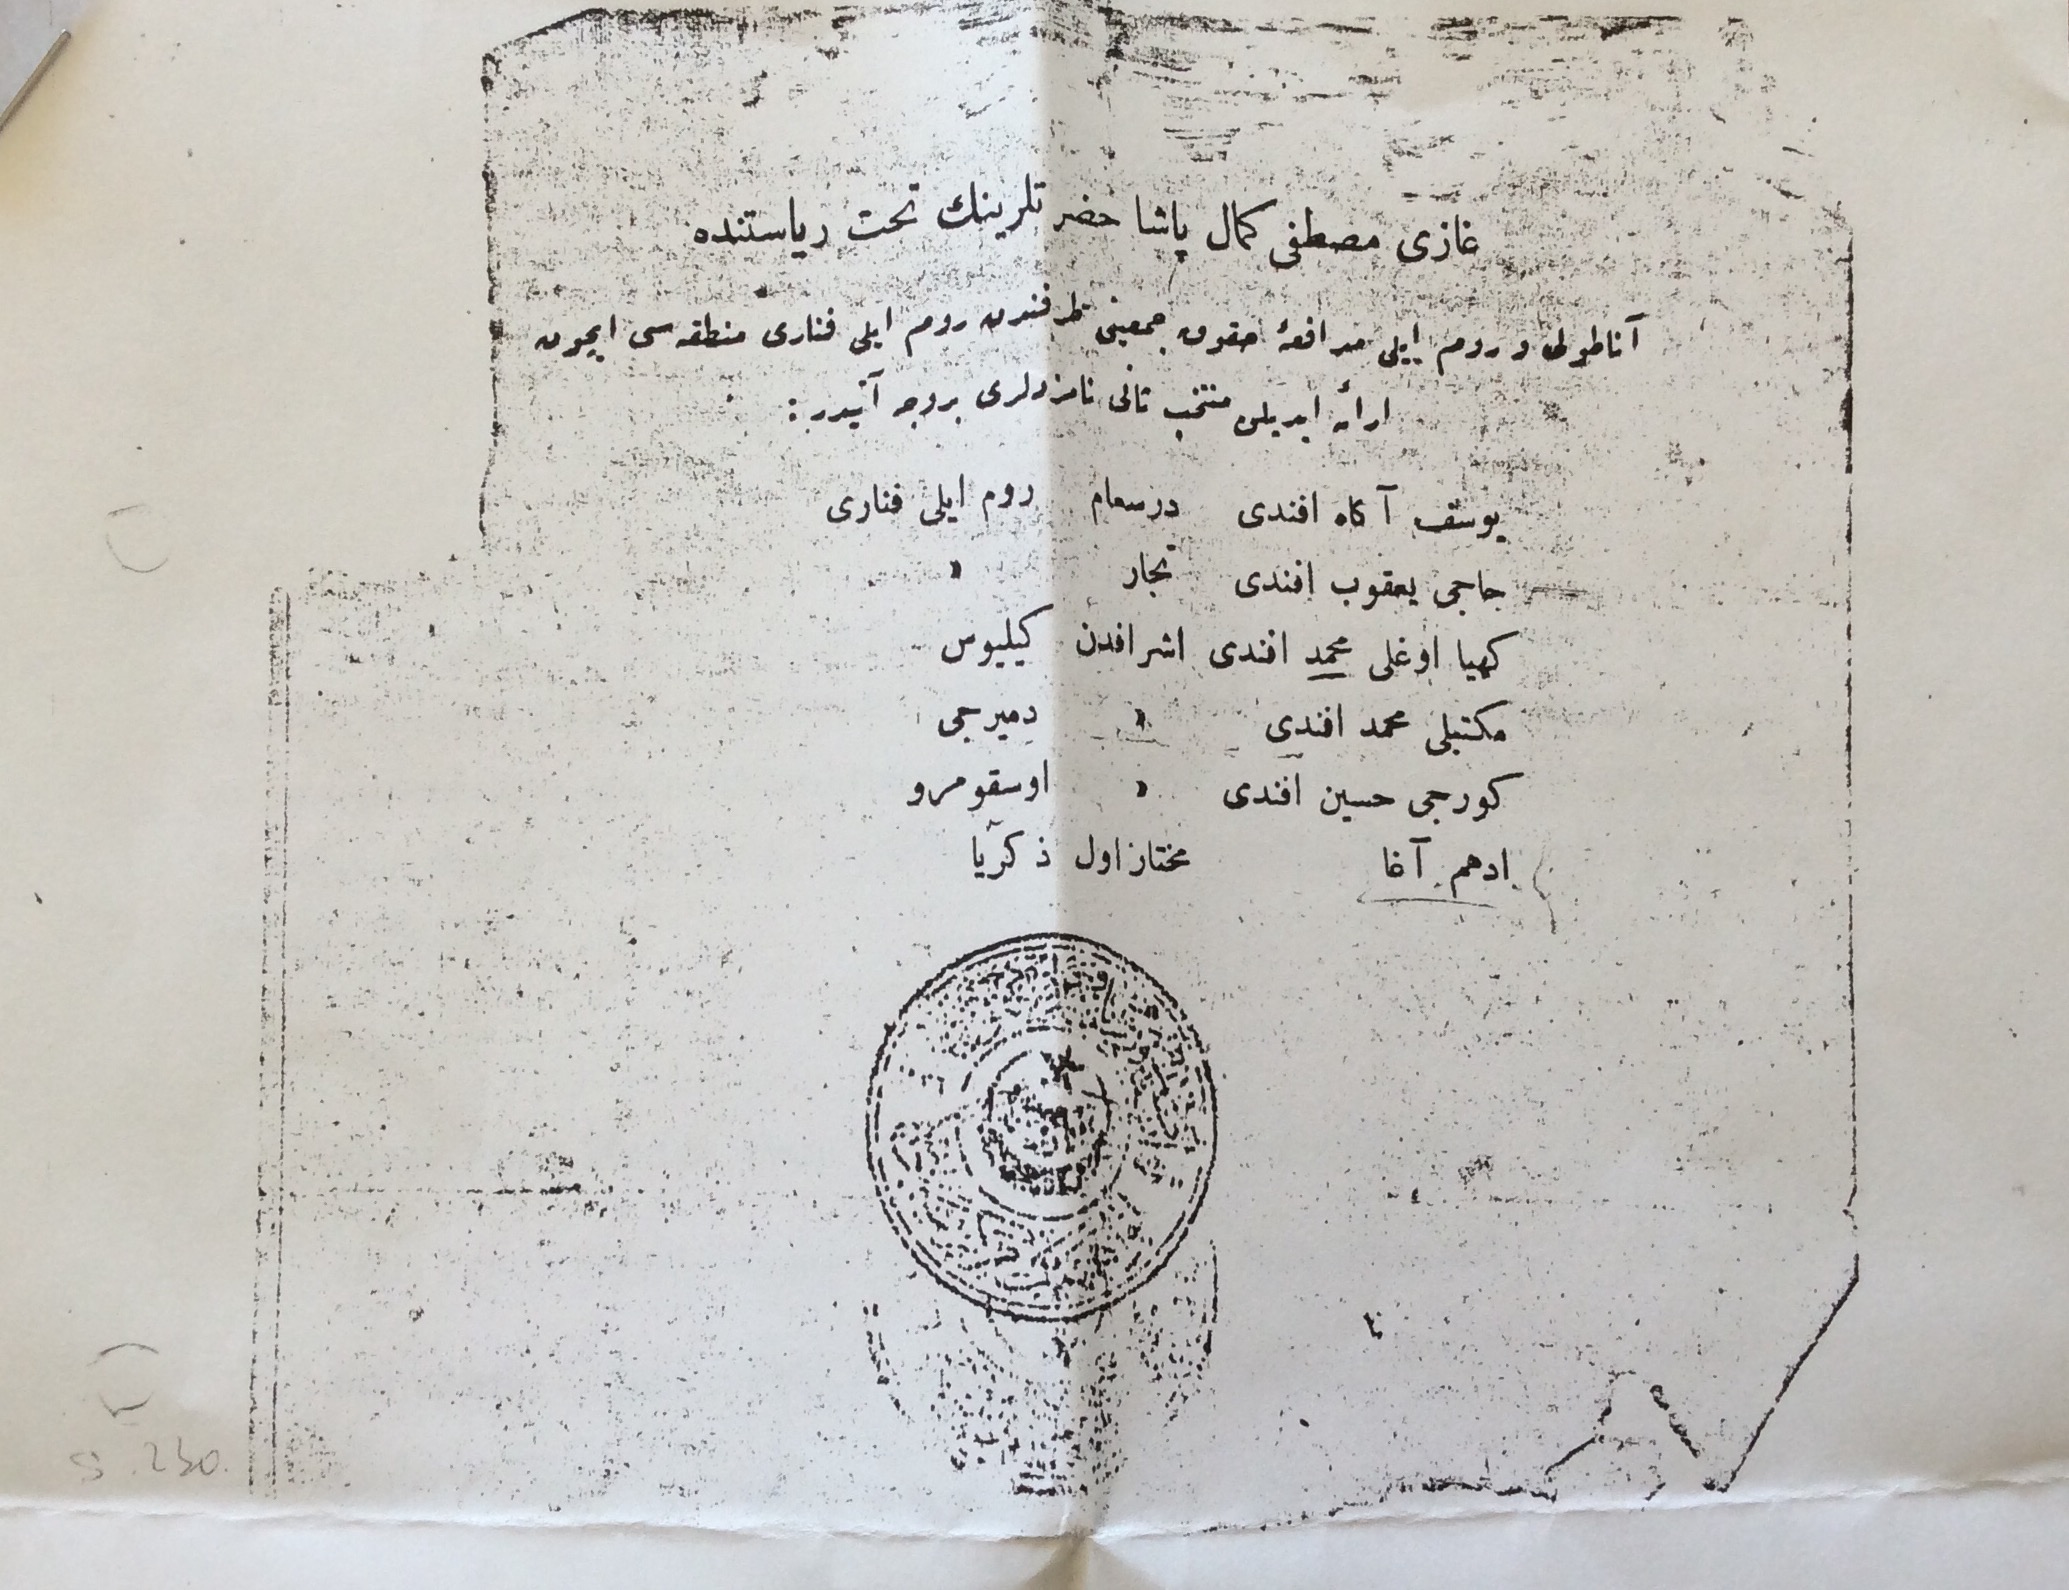 غازی مصطفی کمال پاشا حضرتلرینك تحت ریاستنده
آناطولی و روم ایلی مدافعهٔ حقوق جمعیتی طرفندن روم ایلی فناری منطقه‌سی ایچون
ارائه ایدیلن منتخب ثانی نامزدلری بروجه آتیدر :
یوسف آگاه افندی درسعام روم ایلی فناری
حاجی یعقوب افندی تجار »
کهیا اوغلی محمد افندی اشرافدن کیلیوس
مکتبلی محمد افندی » دمیرجی
کورجی حسین افندی » اوسقومرو
ادهم آغا مختار اول ذکریا
S. 230.